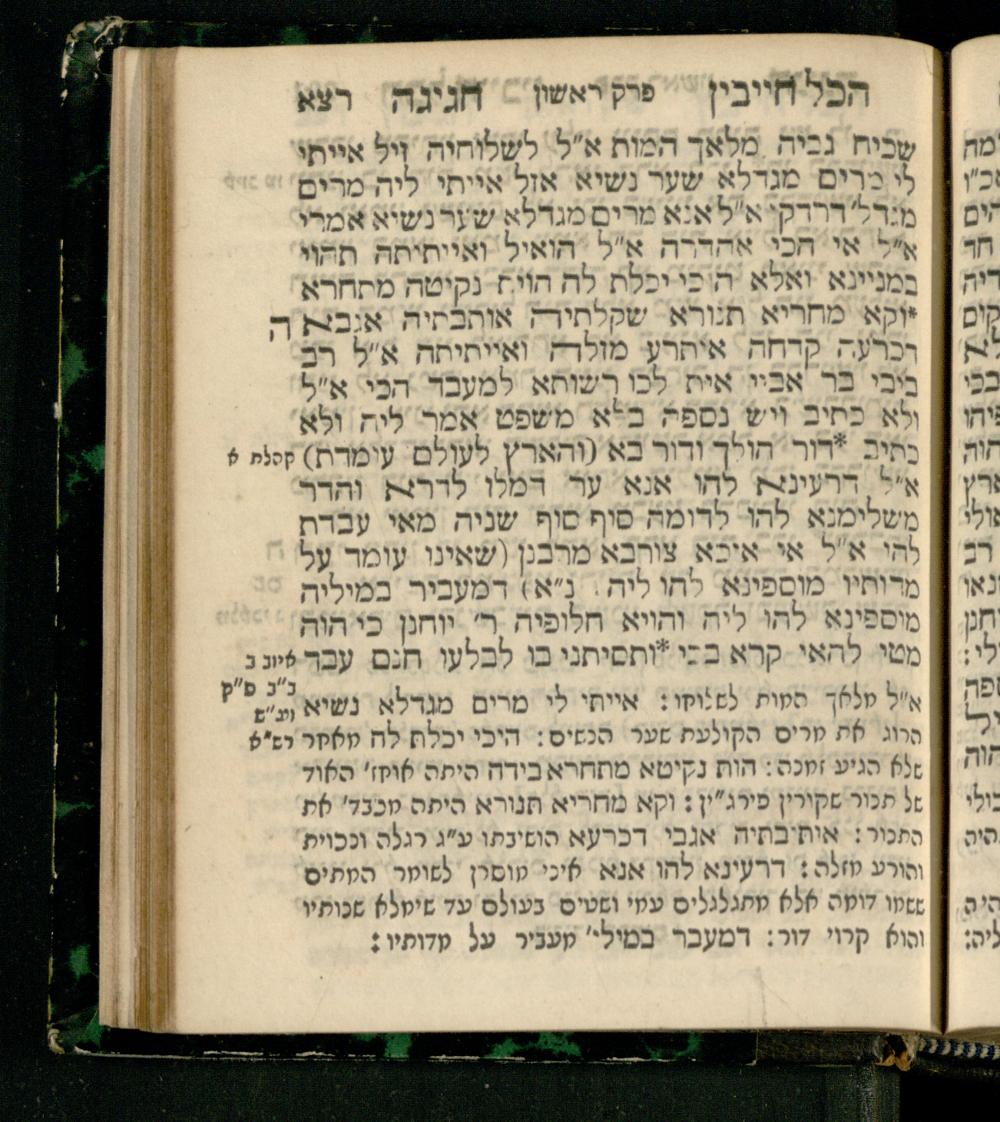 הכל חייבין פרק ראשון חגיגה רצא
שכיח גביה מלאך המות א"ל לשלוחיה זיל אייתי
לי מרים מגדלא שער נשיא אזל אייתי ליה מרים
מגדל' דרדקי א"ל אנא מרים מגדלא שער נשיא אמרי
א"ל אי הכי אהדרה א"ל הואיל ואייתיתה תהוי
במניינא ואלא היכי יכלת לה הוית נקיטה מתחרא
*וקא מחריא תנורא שקלתיה אותבתיה אגבא ה
דכרעה קדחה איתרע מזלה ואייתיתה א"ל רב
ביבי בר אביי אית לכו רשותא למעבד הכי א"ל
ולא כתיב ויש נספה בלא משפט אמר ליה ולא
כתיב *דור הולך ודור בא (והארץ לעולם עומדת) קהלת א
א"ל דרעינא להו אנא עד דמלו לדרא והדר
משלימנא להו לדומה סוף סוף שניה מאי עבדת
להו א"ל אי איכא צורבא מרבנן (שאינו עומד על
מדותיו מוספינא להו ליה. נ"א) דמעביר במיליה
מוספינא להו ליה והויא חלופיה ר' יוחנן כי הוה
מטי להאי קרא בכי *ותסיתני בו לבלעו חנם עבד איוב ב
ב"ב פ"ק
א"ל מלאך המות לשלוחו: אייתי לי מרים מגדלא נשיא
הרוג את מרים הקולעת שער הנשים: היכי יכלת לה מאחר
שלא הגיע זמנה: הות נקיטא מתחרא בידה היתה אוחז' האוד
של תנור שקורין פירג"ין: וקא מחריא תנורא היתה מכבד' את
התנור: אותיבתיה אגבי דכרעא הושיבתו ע"ג רגלה ונכוית
והורע מזלה: דרעינא להו אנא איני מוסרן לשומר המתים
ששמו דומה אלא מתגלגלים עמי ושטים בעולם עד שימלא שנותיו
והוא קרוי דור: דמעבר במילי' מעביר על מדותיו: